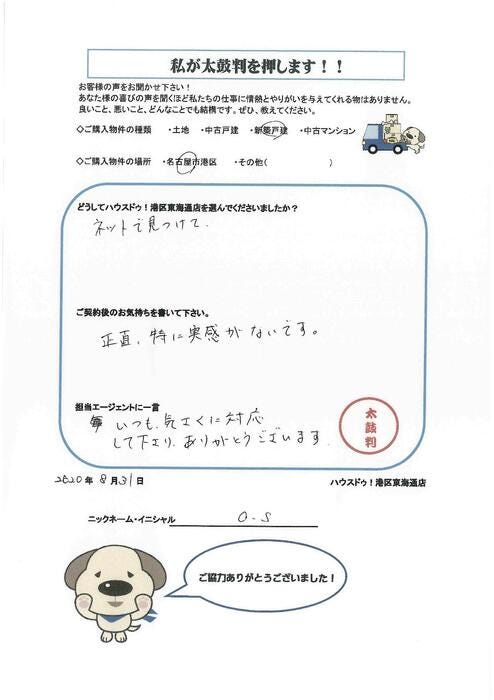 私が太鼓判を押します！！
お客様の声をお聞かせ下さい！
あなた様の喜びの声を聞くほど私たちの仕事に情熱とやりがいを与えてくれる物はありません。
良いこと、悪いこと、どんなことでも結構です。ぜひ、教えてください。
◇ご購入物件の種類　・土地　・中古戸建　・新築戸建　・中古マンション
◇ご購入物件の場所　・名古屋市港区　・その他(　　　　　)
どうしてハウスドゥ！港区東海通店を選んでくださいましたか？
ネットで見つけて.
ご契約後のお気持ちを書いて下さい。
正直、特に実感がないです。
担当エージェントに一言
いつも、気さくに対応
して下さり、ありがとうございます.
太鼓判
2020年 8月31日
ハウスドゥ！港区東海通店
ニックネーム・イニシャル　O-S
ご協力ありがとうございました！